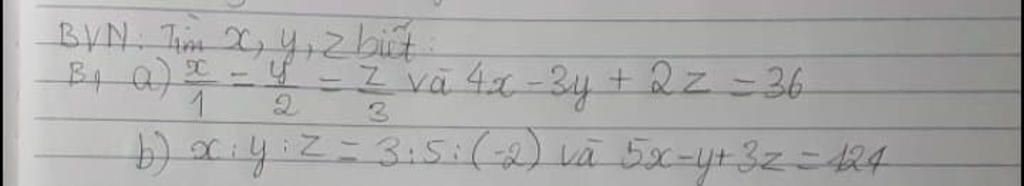 BVN: Tìm x, y, z biết:
B1 a) x/1 = y/2 = z/3 và 4x - 3y + 2z = 36
b) x : y : z = 3 : 5 : (-2) và 5x - y + 3z = 124